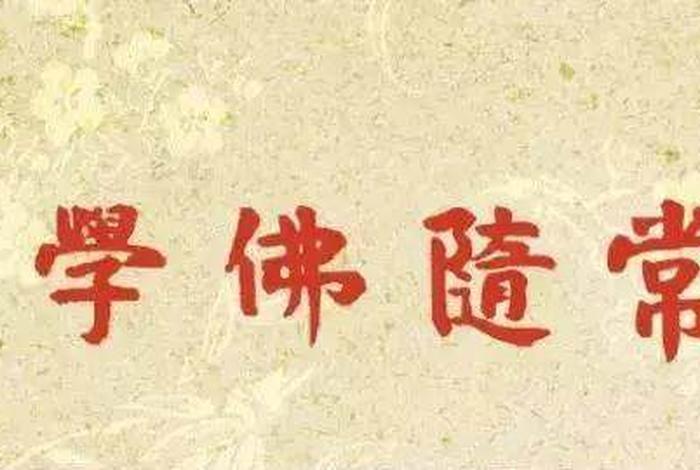 常隨佛學